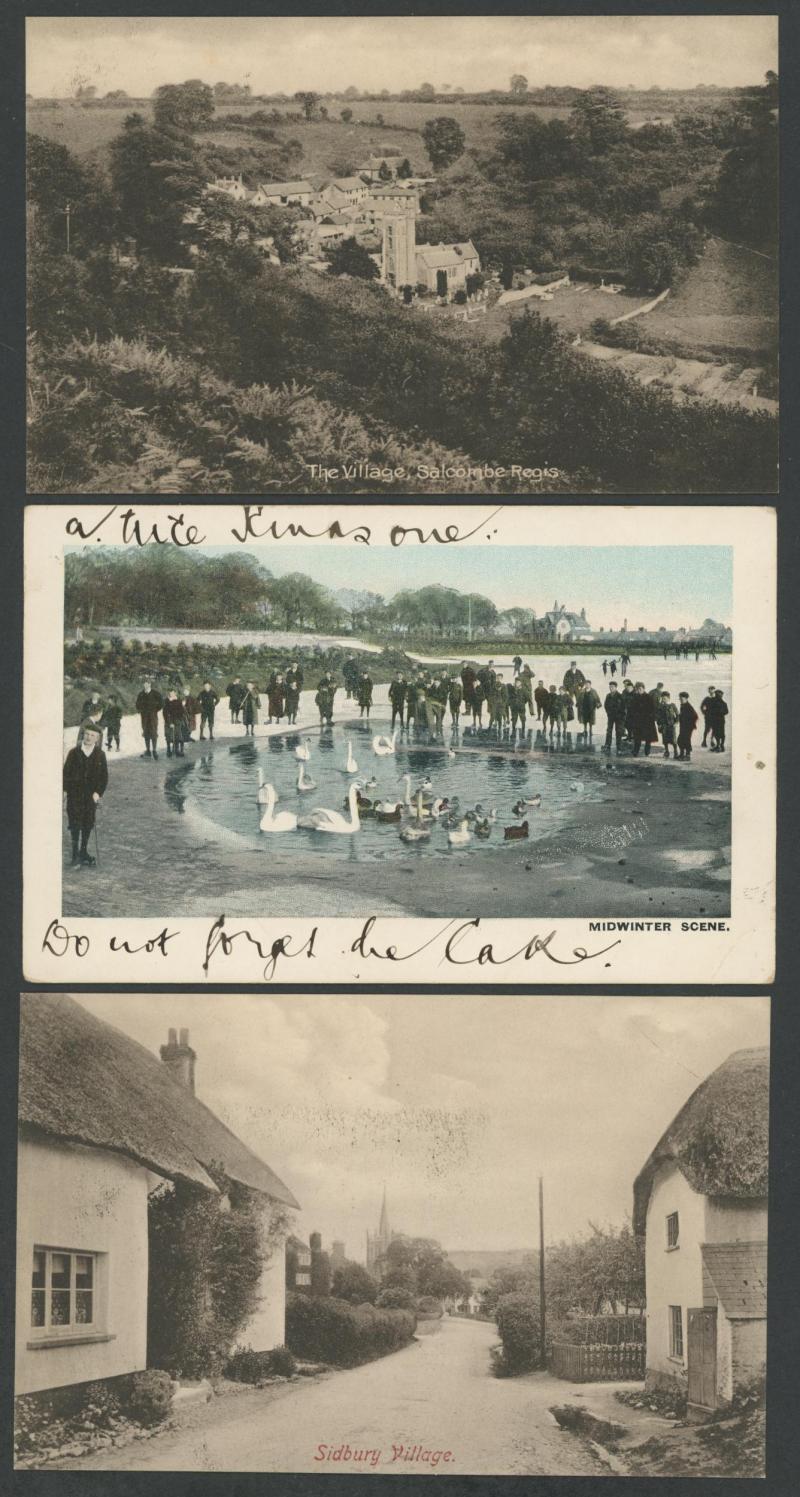 The Village, Salcombe Regis
a. nice Xmas one.
MIDWINTER SCENE.
Do not forget the Cake.
Sidbury Village.